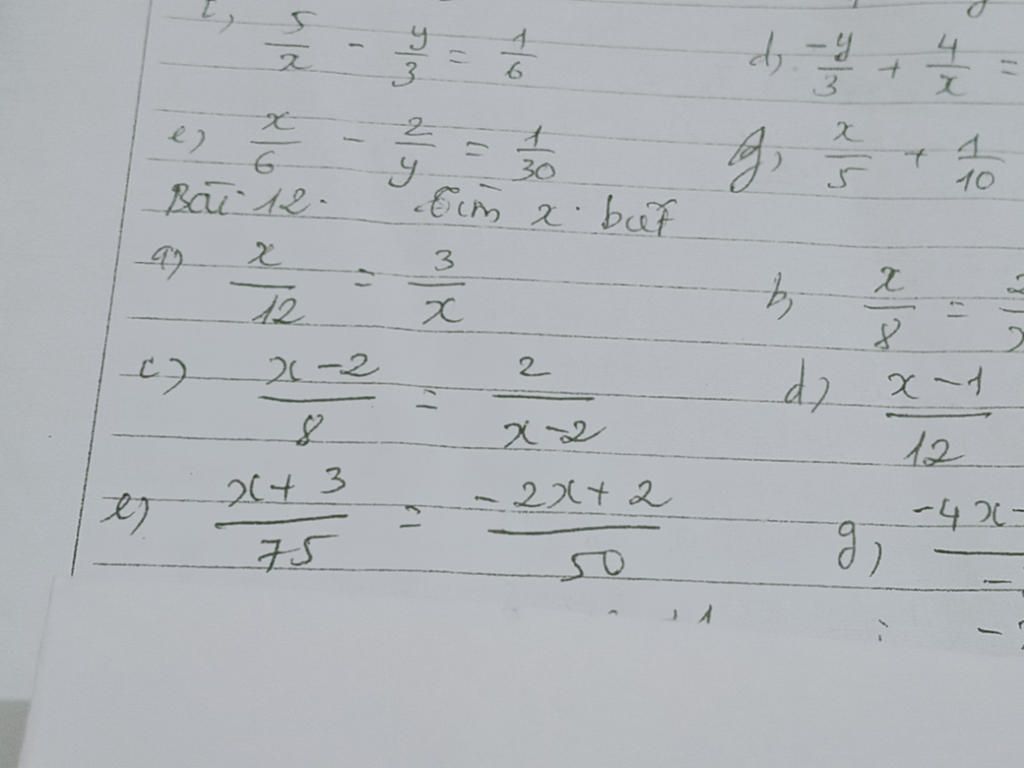 5/x - y/3 = 1/6 d, -y/3 + 4/x =
e) x/6 - 2/y = 1/30 g, x/5 + 1/10
Bài 12. tìm x. biết
a) x/12 = 3/x b, x/8 =
c) x-2/8 = 2/x-2 d) x-1/12
e) x+3/75 = -2x+2/50 g, -4x-